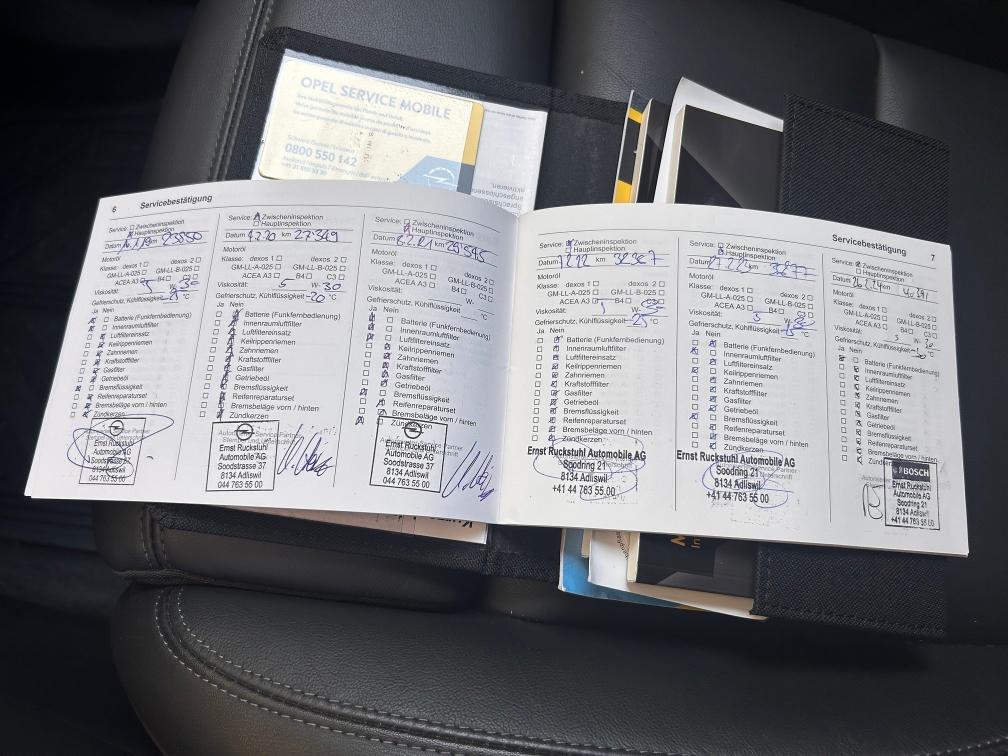 OPEL SERVICE MOBILE
0800 550 142
6 Servicebestätigung
Service: Zwischeninspektion
Hauptinspektion
Datum km 23550
Motoröl
Klasse: dexos 1 dexos 2
GM-LL-A-025 GM-LL-B-025
ACEA A3 B4 C3
Viskosität: 5 W- 30
Gefrierschutz, Kühlflüssigkeit °C
Ja Nein
Batterie (Funkfernbedienung)
Innenraumluftfilter
Luftfiltereinsatz
Keilrippenriemen
Zahnriemen
Kraftstofffilter
Gasfilter
Getriebeöl
Bremsflüssigkeit
Reifenreparaturset
Bremsbeläge vorn / hinten
Zündkerzen
Ernst Ruckstuhl
Automobile AG
Soodstrasse 37
8134 Adliswil
044 763 55 00
Service: Zwischeninspektion
Hauptinspektion
Datum km 27349
Motoröl
Klasse: dexos 1 dexos 2
GM-LL-A-025 GM-LL-B-025
ACEA A3 B4 C3
Viskosität: 5 W- 30
Gefrierschutz, Kühlflüssigkeit -20 °C
Ja Nein
Batterie (Funkfernbedienung)
Innenraumluftfilter
Luftfiltereinsatz
Keilrippenriemen
Zahnriemen
Kraftstofffilter
Gasfilter
Getriebeöl
Bremsflüssigkeit
Reifenreparaturset
Bremsbeläge vorn / hinten
Zündkerzen
Ernst Ruckstuhl
Automobile AG
Soodstrasse 37
8134 Adliswil
044 763 55 00
Service: Zwischeninspektion
Hauptinspektion
Datum 8.2.21 km
Motoröl
Klasse: dexos 1 dexos 2
GM-LL-A-025 GM-LL-B-025
ACEA A3 B4 C3
Viskosität: W-
Gefrierschutz, Kühlflüssigkeit °C
Ja Nein
Batterie (Funkfernbedienung)
Innenraumluftfilter
Luftfiltereinsatz
Keilrippenriemen
Zahnriemen
Kraftstofffilter
Gasfilter
Getriebeöl
Bremsflüssigkeit
Reifenreparaturset
Bremsbeläge vorn / hinten
Zündkerzen
Ernst Ruckstuhl
Automobile AG
Soodstrasse 37
8134 Adliswil
044 763 55 00
Servicebestätigung 7
Service: Zwischeninspektion
Hauptinspektion
Datum km 32367
Motoröl
Klasse: dexos 1 dexos 2
GM-LL-A-025 GM-LL-B-025
ACEA A3 B4 C3
Viskosität: 5 W-
Gefrierschutz, Kühlflüssigkeit -25 °C
Ja Nein
Batterie (Funkfernbedienung)
Innenraumluftfilter
Luftfiltereinsatz
Keilrippenriemen
Zahnriemen
Kraftstofffilter
Gasfilter
Getriebeöl
Bremsflüssigkeit
Reifenreparaturset
Bremsbeläge vorn / hinten
Zündkerzen
Ernst Ruckstuhl Automobile AG
Soodring 21
8134 Adliswil
+41 44 763 55 00
Service: Zwischeninspektion
Hauptinspektion
Datum km
Motoröl
Klasse: dexos 1 dexos 2
GM-LL-A-025 GM-LL-B-025
ACEA A3 B4 C3
Viskosität: 5 W-
Gefrierschutz, Kühlflüssigkeit °C
Ja Nein
Batterie (Funkfernbedienung)
Innenraumluftfilter
Luftfiltereinsatz
Keilrippenriemen
Zahnriemen
Kraftstofffilter
Gasfilter
Getriebeöl
Bremsflüssigkeit
Reifenreparaturset
Bremsbeläge vorn / hinten
Zündkerzen
Ernst Ruckstuhl Automobile AG
Soodring 21
8134 Adliswil
+41 44 763 55 00
Service: Zwischeninspektion
Hauptinspektion
Datum 26.2.24 km
Motoröl
Klasse: dexos 1 dexos 2
GM-LL-A-025 GM-LL-B-025
ACEA A3 B4 C3
Viskosität: 5 W- 30
Gefrierschutz, Kühlflüssigkeit °C
Ja Nein
Batterie (Funkfernbedienung)
Innenraumluftfilter
Luftfiltereinsatz
Keilrippenriemen
Zahnriemen
Kraftstofffilter
Gasfilter
Getriebeöl
Bremsflüssigkeit
Reifenreparaturset
Bremsbeläge vorn / hinten
BOSCH
Ernst Ruckstuhl
Automobile AG
Soodring 21
8134 Adliswil
+41 44 763 55 00